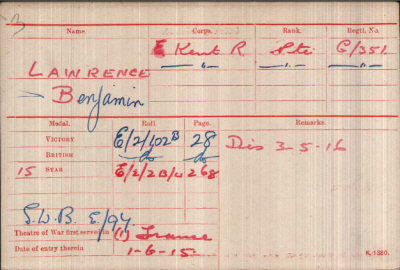 Name. Corps. Rank. Regtl. No.
E Kent R. Pte G/351
LAWRENCE —"— —"— —"—
Benjamin
Medal. Roll. Page. Remarks.
VICTORY E/2/102B 28 Dis 3-5-16
BRITISH do do
15 STAR E/2/2B/4 268
S.W.B. E/94
Theatre of War first served in (1) France
Date of entry therein 1-6-15
K. 1380.